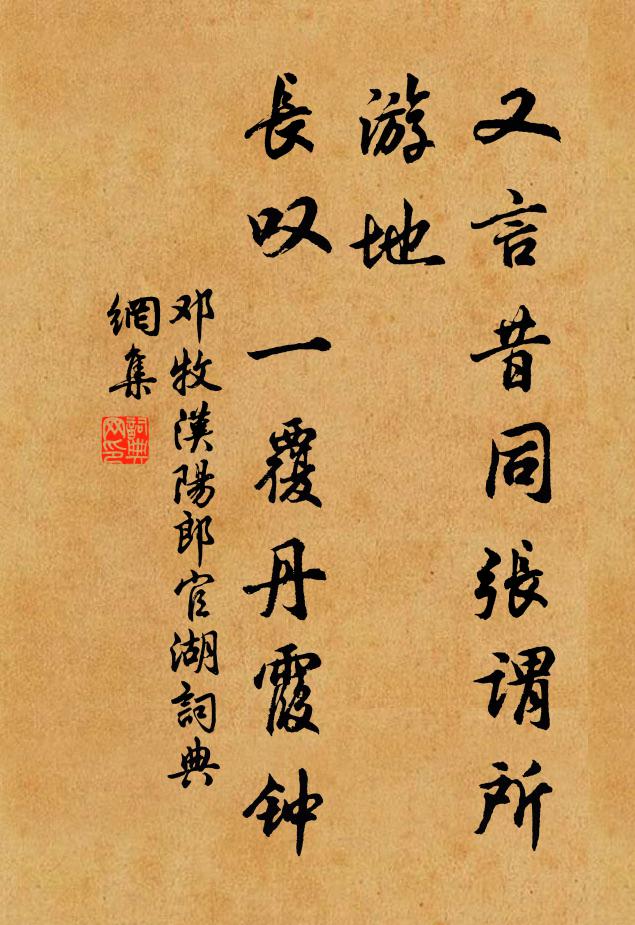 又言昔同張謂所
游地
長叹一覆丹霞钟
邓牧漢陽郎官湖詞典
網集
詞典
网印